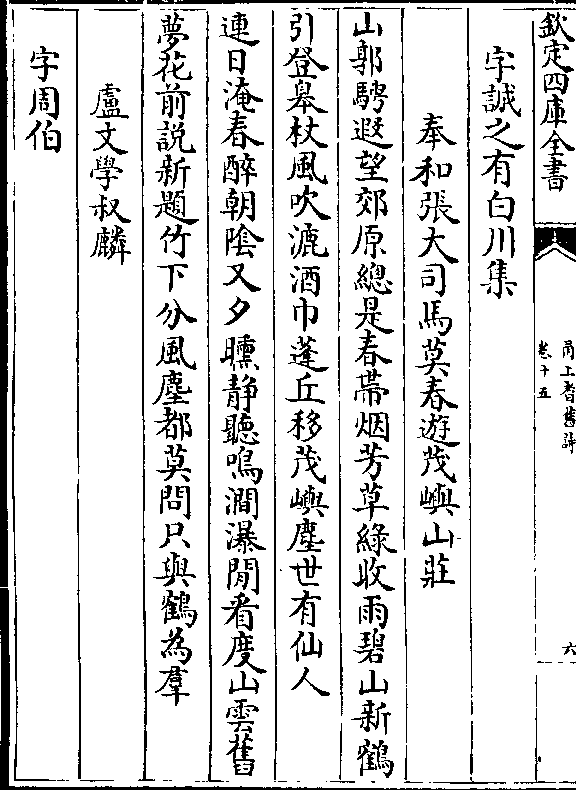 欽定四庫全書
甬上耆舊詩
卷十五
六
字誠之有白川集
奉和張大司馬莫春遊茂嶼山莊
山郭騁遐望郊原總是春帶烟芳草綠收雨碧山新鶴
引登皋杖風吹漉酒巾蓬丘移茂嶼塵世有仙人
連日淹春醉朝陰又夕曛靜聽鳴澗瀑閒看度山雲舊
夢花前說新題竹下分風塵都莫問只與鶴為羣
盧文學叔麟
字周伯